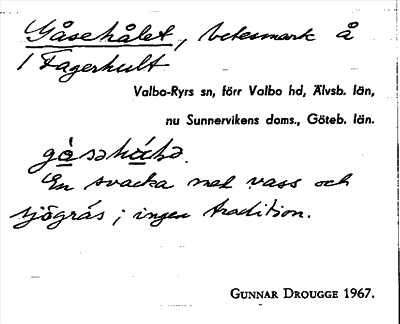 Gåsehålet, betesmark å
1 Fagerhult
Valbo-Ryrs sn, förr Valbo hd, Älvsb. län,
nu Sunnervikens doms., Göteb. län.
En svacka med vass och
sjögräs; ingen tradition.
GUNNAR DROUGGE 1967.